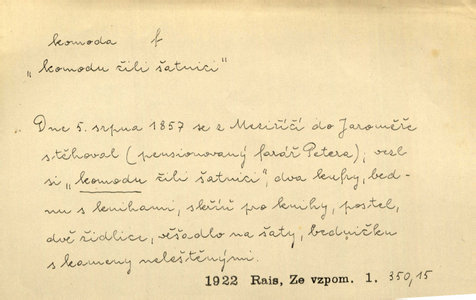 komoda f
„komodu žili šatnici"
Dne 5. srpna 1857 se z Meziříčí do Jaroměře
stěhoval (pensionovaný farář Petera); vezl
si „komodu žili šatnici", dva kufry, bed-
nu s knihami, skříň pro knihy, postel,
dvě židlice, věšadlo na šaty, bedničku
s kameny neleštěnými.
1922 Rais, Ze vzpom. 1. 350,15